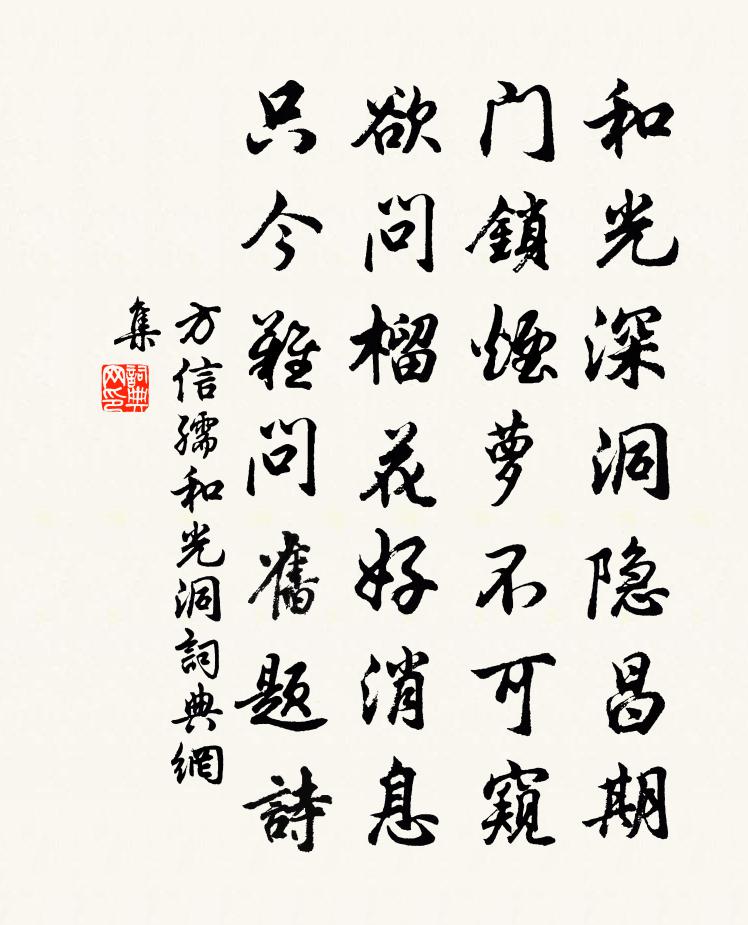 和光深洞隐昌期
门鎖煙萝不可窥
欲问榴花好消息
只今難问舊题詩
方信孺和光洞詞典網
集
詞典
网印